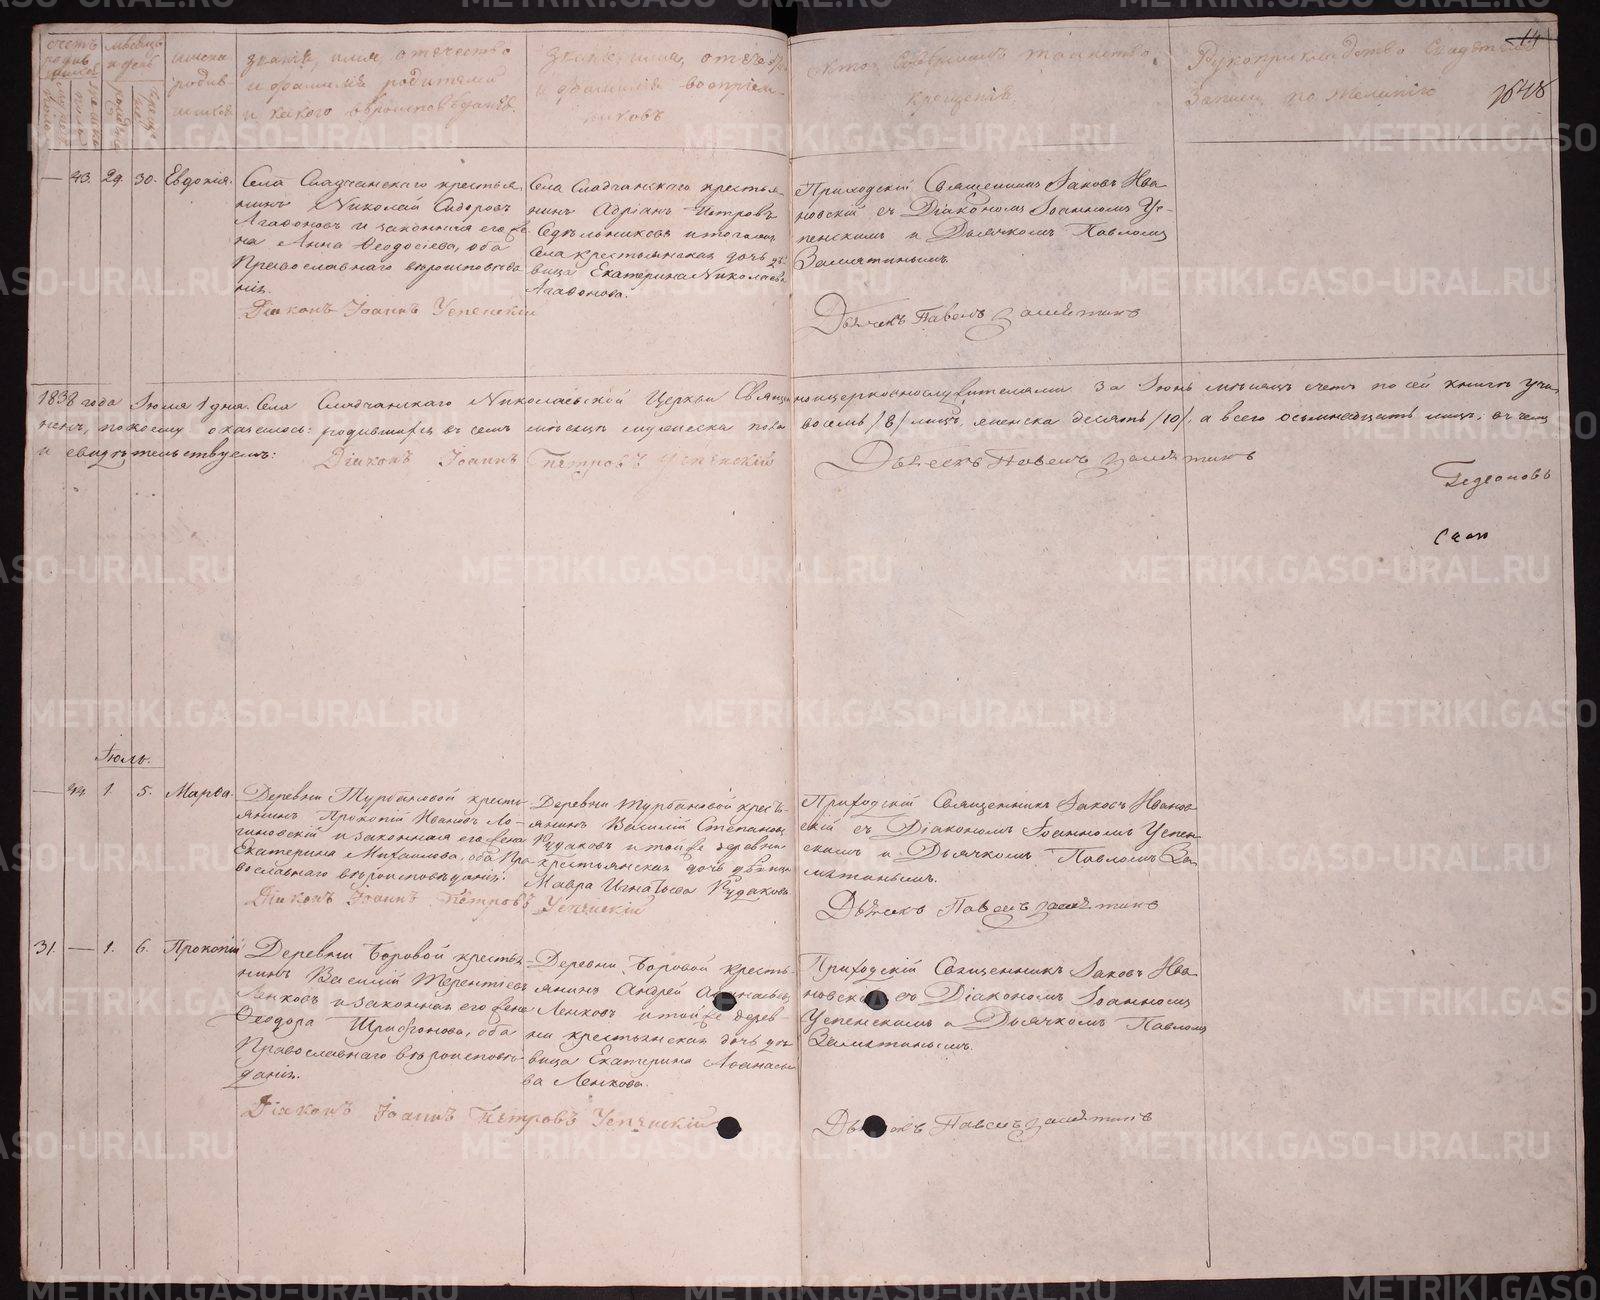 счетъ
родив
шихся
мѣсяцъ
и день
имена
родив
шихся
званіе, имя, отчество
и фамилія родителей
и какого вѣроисповѣданія.
званіе, имя, отчество
и фамилія воспріем-
никовъ
кто совершалъ таинство
крещенія
Рукоприкладство свидѣтелей
записи по желанію
14
— 43. 29. 30. Евдокія.
Села Сладчанскаго крестья
нинъ Николай Сидоровъ
Агафоновъ и законная его же
на Анна Ѳеодосіева, оба
Православнаго вѣроисповѣда
нія.
Села Сладчанскаго крестья
нинъ Адріанъ Петровъ
Сѣдѣльниковъ и тогожъ
Села крестьянская дочь дѣ
вица Екатерина Николаева
Агафонова.
Приходскій Священникъ Іаковъ Ива
новскій съ Діакономъ Іоанномъ Ус-
пенскимъ и Дьячкомъ Павломъ
Замятинымъ.
Діаконъ Іоаннъ Успенскій
Дьячекъ Павелъ Замятинъ
1838 года Іюля 1 дня. Села Сладчанскаго Николаевской Церкви Священноцерковнослужителями за Іюнь мѣсяцъ счетъ по сей книгѣ учи
ненъ, по коему оказалось: родившихся въ семъ мѣсяцѣ мужеска пола восемь /8/ лицъ, женска десять /10/, а всего осьмнадцать лицъ, въ чемъ
и свидѣтельствуемъ: Діаконъ Іоаннъ Петровъ Успенскій Дьячекъ Павелъ Замятинъ
Гедеоновъ
Іюль.
— 44. 1. 5. Марѳа.
Деревни Турбановой кресть
янинъ Прокопій Ивановъ Ло-
гиновскій и законная его жена
Екатерина Михайлова, оба Пра
вославнаго вѣроисповѣданія.
Деревни Турбановой кресть-
янинъ Василій Степановъ
Кудаковъ и той же деревни
крестьянская дочь дѣвица
Мавра Игнатьева Кудакова
Приходскій Священникъ Іаковъ Иванов
скій съ Діакономъ Іоанномъ Успен-
скимъ и Дьячкомъ Павломъ За-
мятинымъ.
Діаконъ Іоаннъ Петровъ Успенскій
Дьячекъ Павелъ Замятинъ
31. — 1. 6. Прокопій
Деревни Боровой крестья
нинъ Василій Терентьевъ
Ленковъ и законная его жена
Ѳеодора Трифонова, оба
Православнаго вѣроисповѣ-
данія.
Деревни Боровой кресть-
янинъ Андрей Аѳанасьевъ
Ленковъ и той же дерев-
ни крестьянская дочь дѣ-
вица Екатерина Аѳанасье
ва Ленкова.
Приходскій Священникъ Іаковъ Ива
новскій съ Діакономъ Іоанномъ
Успенскимъ и Дьячкомъ Павломъ
Замятинымъ.
Діаконъ Іоаннъ Петровъ Успенскій
Дьячекъ Павелъ Замятинъ
METRIKI.GASO-URAL.RU